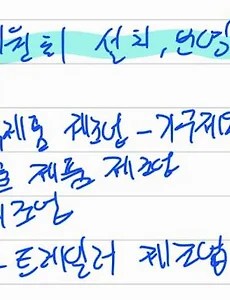 위원회 설치, 운영
제품 제조업 - 가구제외
제품 제조업
제조업
트레일러 제조업